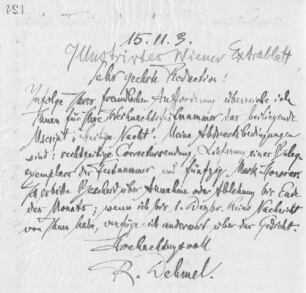 124
15.11.3.
Illustrirtes Wiener Extrablatt
Sehr geehrte Redaction!
Infolge Ihrer freundlichen Aufforderung überreiche ich
Ihnen für Ihre Weihnachtsfestnummer das beiliegende
Mscript "Heilige Nacht". Meine Abdrucksbedingungen
sind: rechtzeitige Correctursendung, Lieferung eines Beleg-
exemplars der Festnummer und fünfzig Mark Honorar.
Ich erbitte Bescheid über Annahme oder Ablehnung bis Ende
des Monats; wenn ich bis 1. Dezbr. keine Nachricht
von Ihnen habe, verfüge ich anderweit über das Gedicht.
Hochachtungsvoll
R. Dehmel.